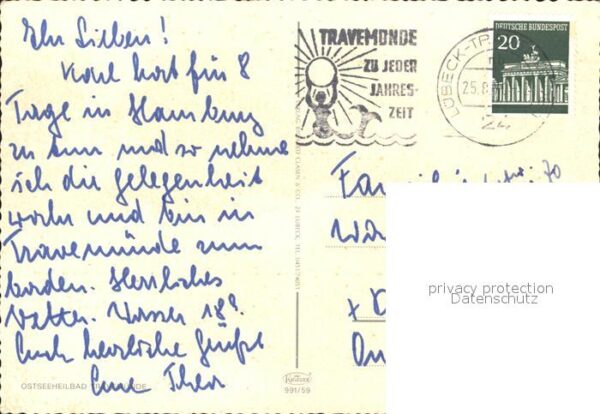 Ihr Lieben!
Karl hat für 8
Tage in Hamburg
zu tun und so nehme
ich die gelegenheit
wahr und bin in
Travemünde zum
baden. Herrliches
Wetter. Wasser 18°.
Euch herzliche Grüße
Eure Thea
OSTSEEHEILBAD TRAVEMÜNDE
TRAVEMÜNDE
ZU JEDER
JAHRES-
ZEIT
LÜBECK-TR
25.8
24
DEUTSCHE BUNDESPOST
20
Krüger
991/59
privacy protection
Datenschutz